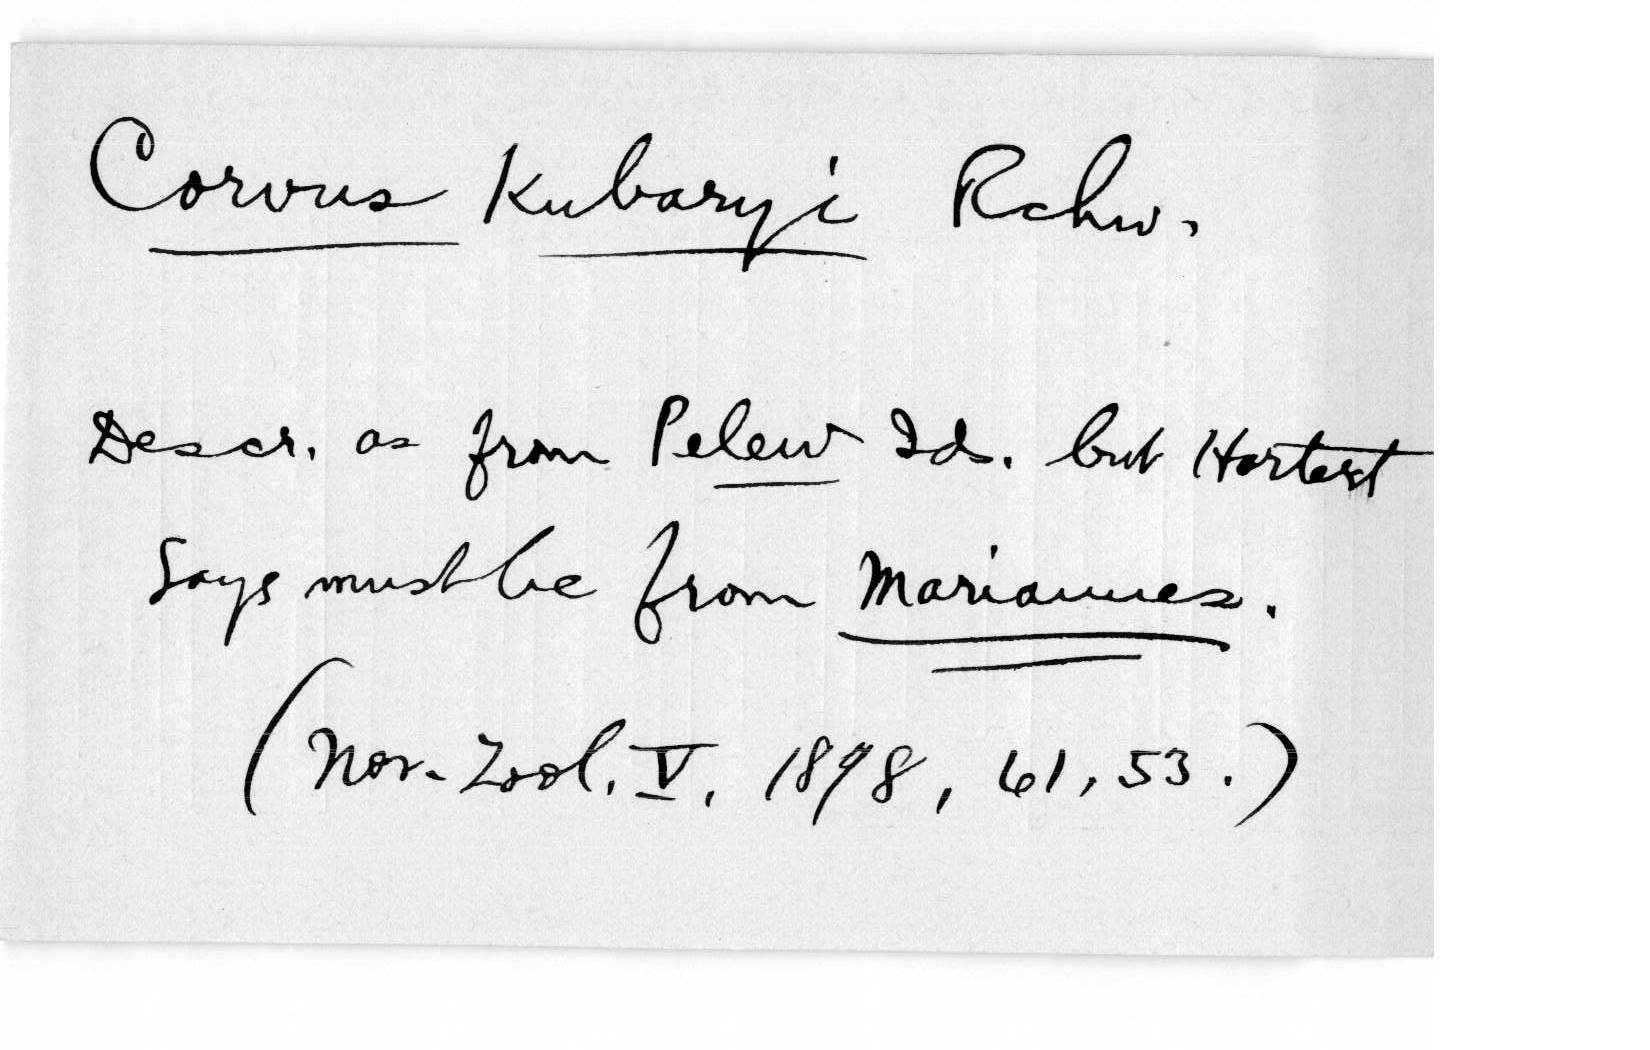 Corvus Kubaryi Rchw.
Descr. as from Pelew Ids. but Hartert
says must be from Mariannes.
(Nov. Zool. V, 1898, 61, 53.)